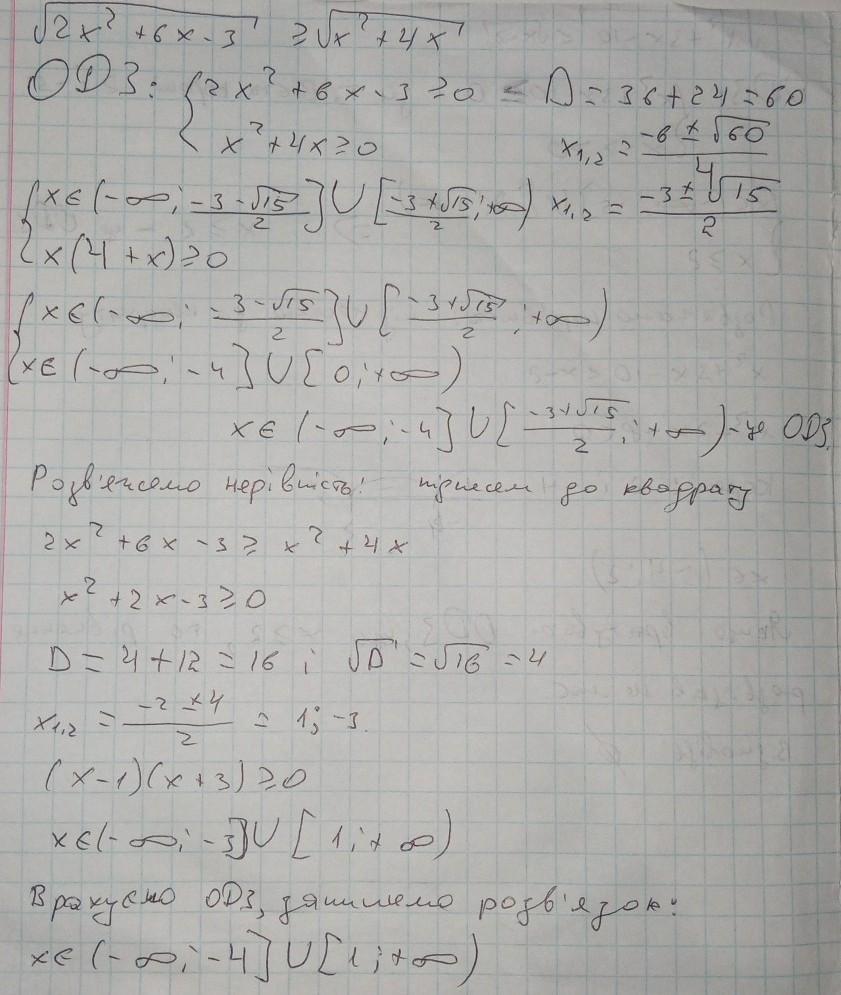 √(2x² + 6x - 3) ≥ √(x² + 4x)
ОДЗ: { 2x² + 6x - 3 ≥ 0 D = 36 + 24 = 60
x² + 4x ≥ 0 x₁,₂ = (-6 ± √60)/4
{ x ∈ (-∞; (-3 - √15)/2] ∪ [(-3 + √15)/2; +∞) x₁,₂ = (-3 ± √15)/2
x(4 + x) ≥ 0
{ x ∈ (-∞; (-3 - √15)/2] ∪ [(-3 + √15)/2; +∞)
x ∈ (-∞; -4] ∪ [0; +∞)
x ∈ (-∞; -4] ∪ [(-3 + √15)/2; +∞) - це ОДЗ.
Розв'яжемо нерівність: піднесем до квадрату
2x² + 6x - 3 ≥ x² + 4x
x² + 2x - 3 ≥ 0
D = 4 + 12 = 16 ; √D = √16 = 4
x₁,₂ = (-2 ± 4)/2 = 1; -3.
(x - 1)(x + 3) ≥ 0
x ∈ (-∞; -3] ∪ [1; + ∞)
Врахуємо ОДЗ, запишемо розв'язок:
x ∈ (-∞; -4] ∪ [1; +∞)